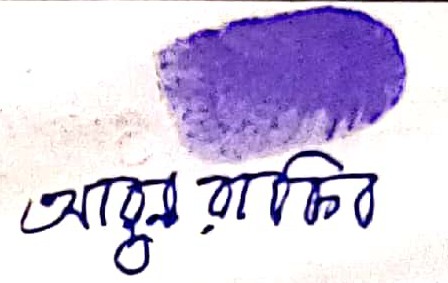 আবুল রাকিব